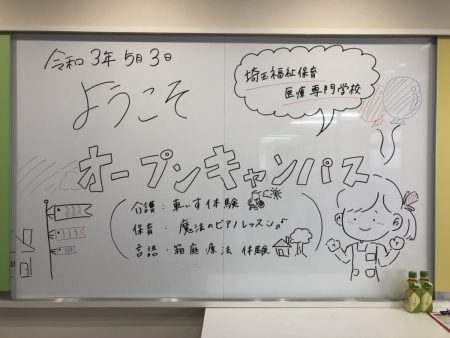 令和3年5月3日
ようこそ
埼玉福祉保育
医療専門学校
オープンキャンパス
介護:車いす体験
保育:魔法のピアノレッスン♪
言語:箱庭療法体験